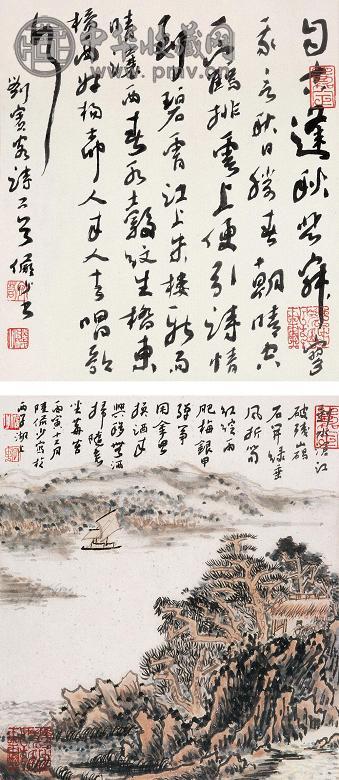 中华收藏网
www.pmv.cn
自古逢秋悲寂寥
我言秋日勝春朝晴空
一鶴排雲上便引詩情
到碧霄江上朱樓新雨
晴瀼西春水縠紋生橋東
橋西好楊柳人來人去唱歌
行
劉賓客詩二首 儼少書
剩水滄江
破殘山碣
石開綠垂
風折筍
紅綻雨
肥梅銀甲
彈箏
用金魚
換酒來
興移無洒
掃隨意
坐莓苔
丙寅十二月
陸儼少寫於
西子湖上